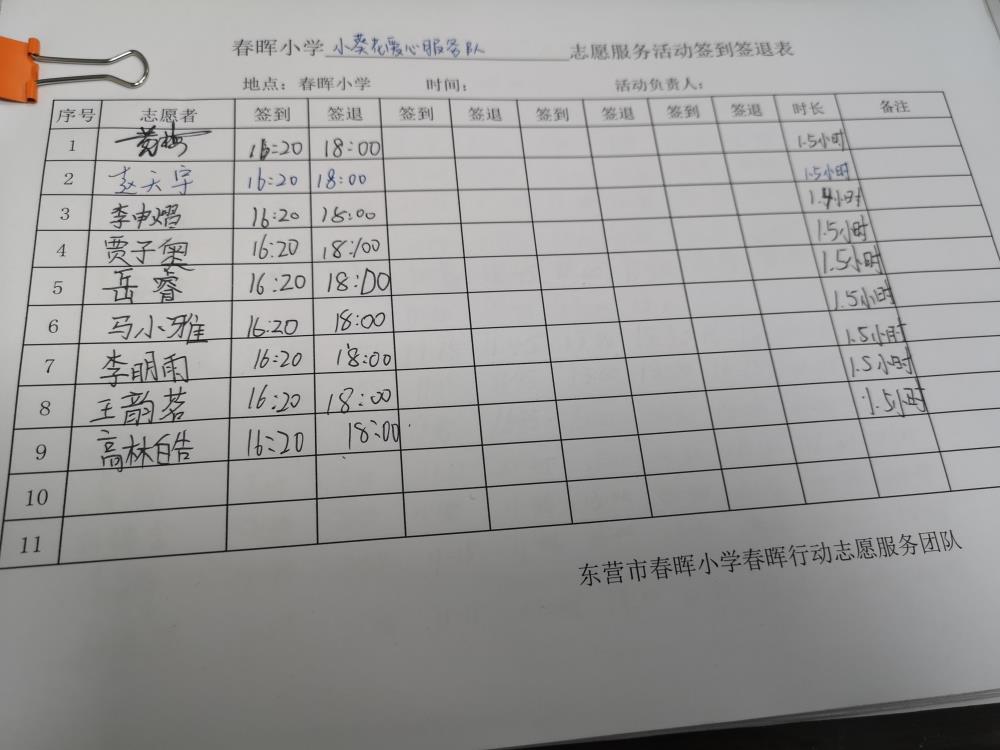 春晖小学 小葵花爱心服务队 志愿服务活动签到签退表
地点：春晖小学 时间： 活动负责人：
序号 志愿者 签到 签退 签到 签退 签到 签退 签到 签退 时长 备注
1 黄梅 16:20 18:00 1.5小时
2 赵天宇 16:20 18:00 1.5小时
3 李申熠 16:20 18:00 1.4小时
4 贾子奥 16:20 18:00 1.5小时
5 岳睿 16:20 18:00 1.5小时
6 马小雅 16:20 18:00 1.5小时
7 李明雨 16:20 18:00 1.5小时
8 王韵茗 16:20 18:00 1.5小时
9 高林皓 16:20 18:00 1.5小时
10
11
东营市春晖小学春晖行动志愿服务团队